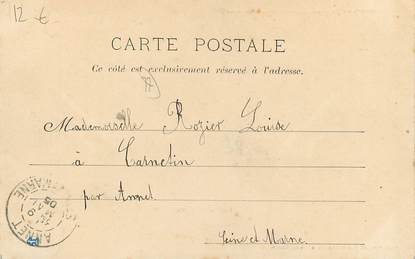 12 €
CARTE POSTALE
Ce côté est exclusivement réservé à l'adresse.
Mademoiselle Rozier Louise
à Carnetin
par Annet
Seine et Marne
ANNET
MARNE
05